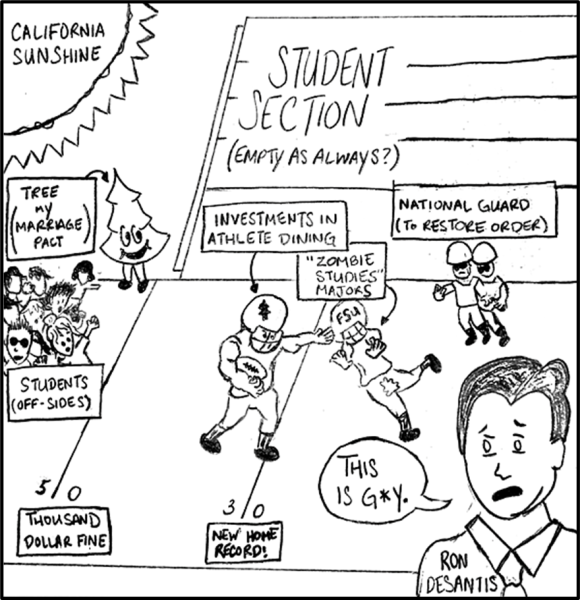 CALIFORNIA
SUNSHINE
STUDENT
SECTION
(EMPTY AS ALWAYS?)
TREE
(MY
MARRIAGE)
PACT
INVESTMENTS IN
ATHLETE DINING
"ZOMBIE
STUDIES"
MAJORS
NATIONAL GUARD
(TO RESTORE ORDER)
FSU
STUDENTS
(OFF-SIDES)
THIS
IS G*Y.
5 0
THOUSAND
DOLLAR FINE
3 0
NEW HOME
RECORD!
RON
DESANTIS